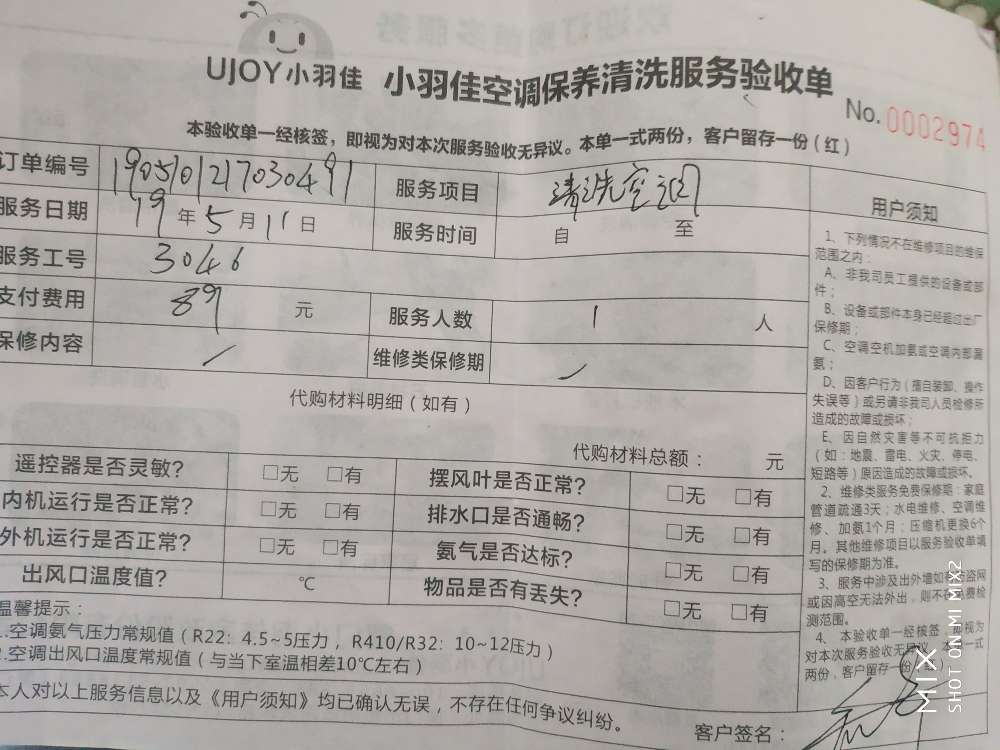 UJOY小羽佳 小羽佳空调保养清洗服务验收单
No.0002974
本验收单一经核签，即视为对本次服务验收无异议。本单一式两份，客户留存一份（红）
订单编号 1905101217030491 服务项目 清洗空调
服务日期 19年5月11日 服务时间 自 至
服务工号 3046
支付费用 89 元 服务人数 1 人
保修内容 / 维修类保修期 /
代购材料明细（如有）
代购材料总额： 元
遥控器是否灵敏? □无 □有 摆风叶是否正常? □无 □有
内机运行是否正常? □无 □有 排水口是否通畅? □无 □有
外机运行是否正常? □无 □有 氨气是否达标? □无 □有
出风口温度值? ℃ 物品是否有丢失? □无 □有
温馨提示：
1.空调氨气压力常规值（R22：4.5~5压力，R410/R32：10~12压力）
2.空调出风口温度常规值（与当下室温相差10℃左右）
本人对以上服务信息以及《用户须知》均已确认无误，不存在任何争议纠纷。
客户签名：
用户须知
1、下列情况不在维修项目的维保
范围之内：
A、非我司员工提供的设备或部
件；
B、设备或部件本身已经超过出厂
保修期；
C、空调空机加氨或空调内部漏
氨；
D、因客户行为（擅自装卸、操作
失误等）或另请非我司人员检修所
造成的故障或损坏；
E、因自然灾害等不可抗拒力
（如：地震、雷电、火灾、停电、
短路等）原因造成的故障或损坏。
2、维修类服务免费保修期：家庭
管道疏通3天；水电维修、空调维
修、加氨1个月；压缩机更换6个
月。其他维修项目以服务验收单填
写的保修期为准。
3、服务中涉及出外墙如有防盗网
或因高空无法外出，则不在免费检
测范围。
4、本验收单一经核签，即视为
对本次服务验收无异议，本单一式
两份，客户留存一份（红）
MIX
SHOT ON MI MIX2